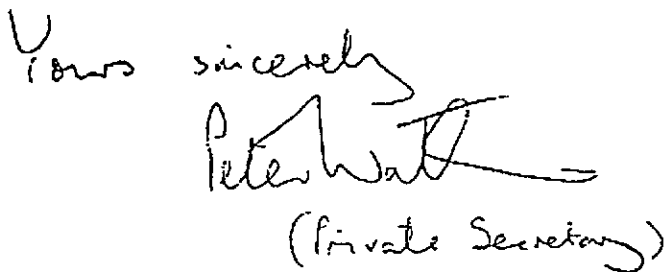 Yours sincerely
Peter
(Private Secretary)